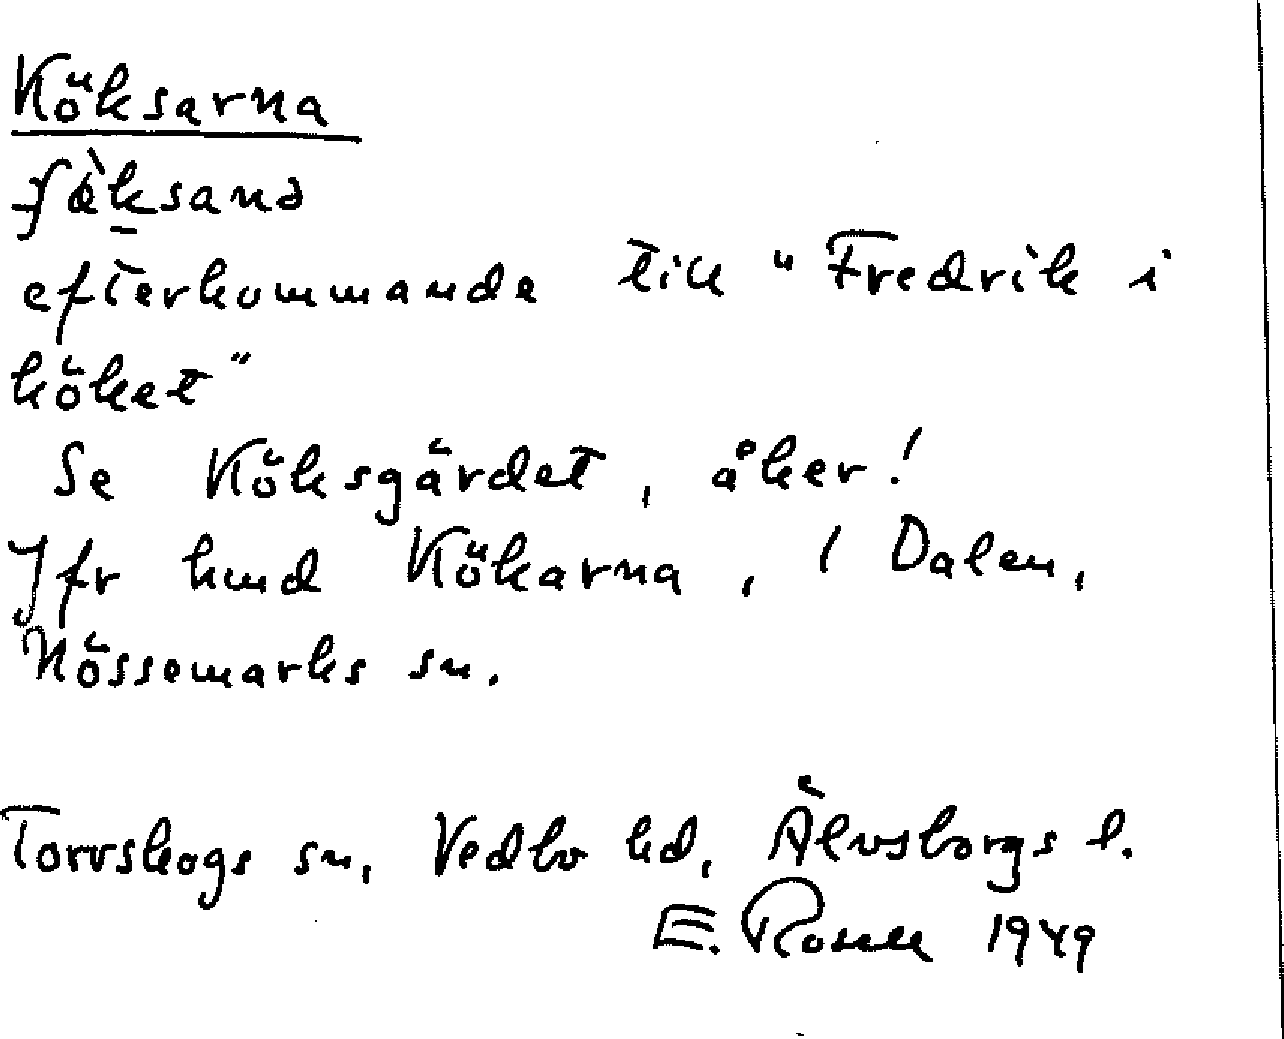 Köksarna
efterkommande till "Fredrik i
köket"
Se Köksgärdet, åker!
Jfr hmd Kökarna, i Dalen,
Nössemarks sn.
Torrskogs sn, Vedbo hd, Älvsborgs l.
E. Rosell 1949